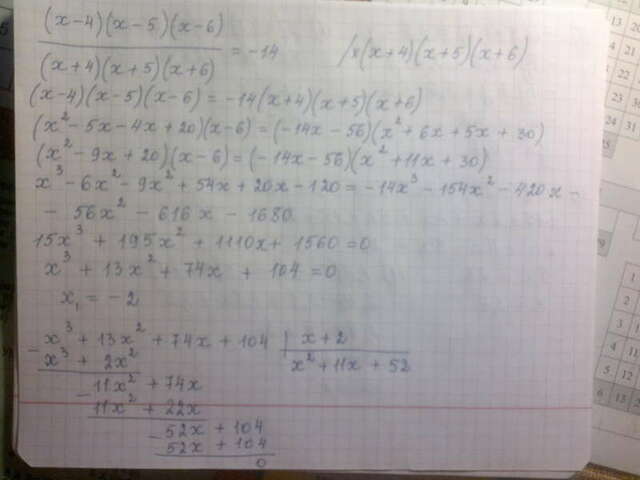 (x-4)(x-5)(x-6)
(x+4)(x+5)(x+6) = -14 /x(x+4)(x+5)(x+6)
(x-4)(x-5)(x-6) = -14(x+4)(x+5)(x+6)
(x²-5x-4x+20)(x-6) = (-14x-56)(x²+6x+5x+30)
(x²-9x+20)(x-6) = (-14x-56)(x²+11x+30)
x³-6x²-9x²+54x+20x-120 = -14x³-154x²-420x-
- 56x² - 616x - 1680
15x³ + 195x² + 1110x + 1560 = 0
x³ + 13x² + 74x + 104 = 0
x₁ = -2
- x³ + 13x² + 74x + 104 | x+2
x³ + 2x² x²+11x+52
- 11x² + 74x
11x² + 22x
- 52x + 104
52x + 104
0